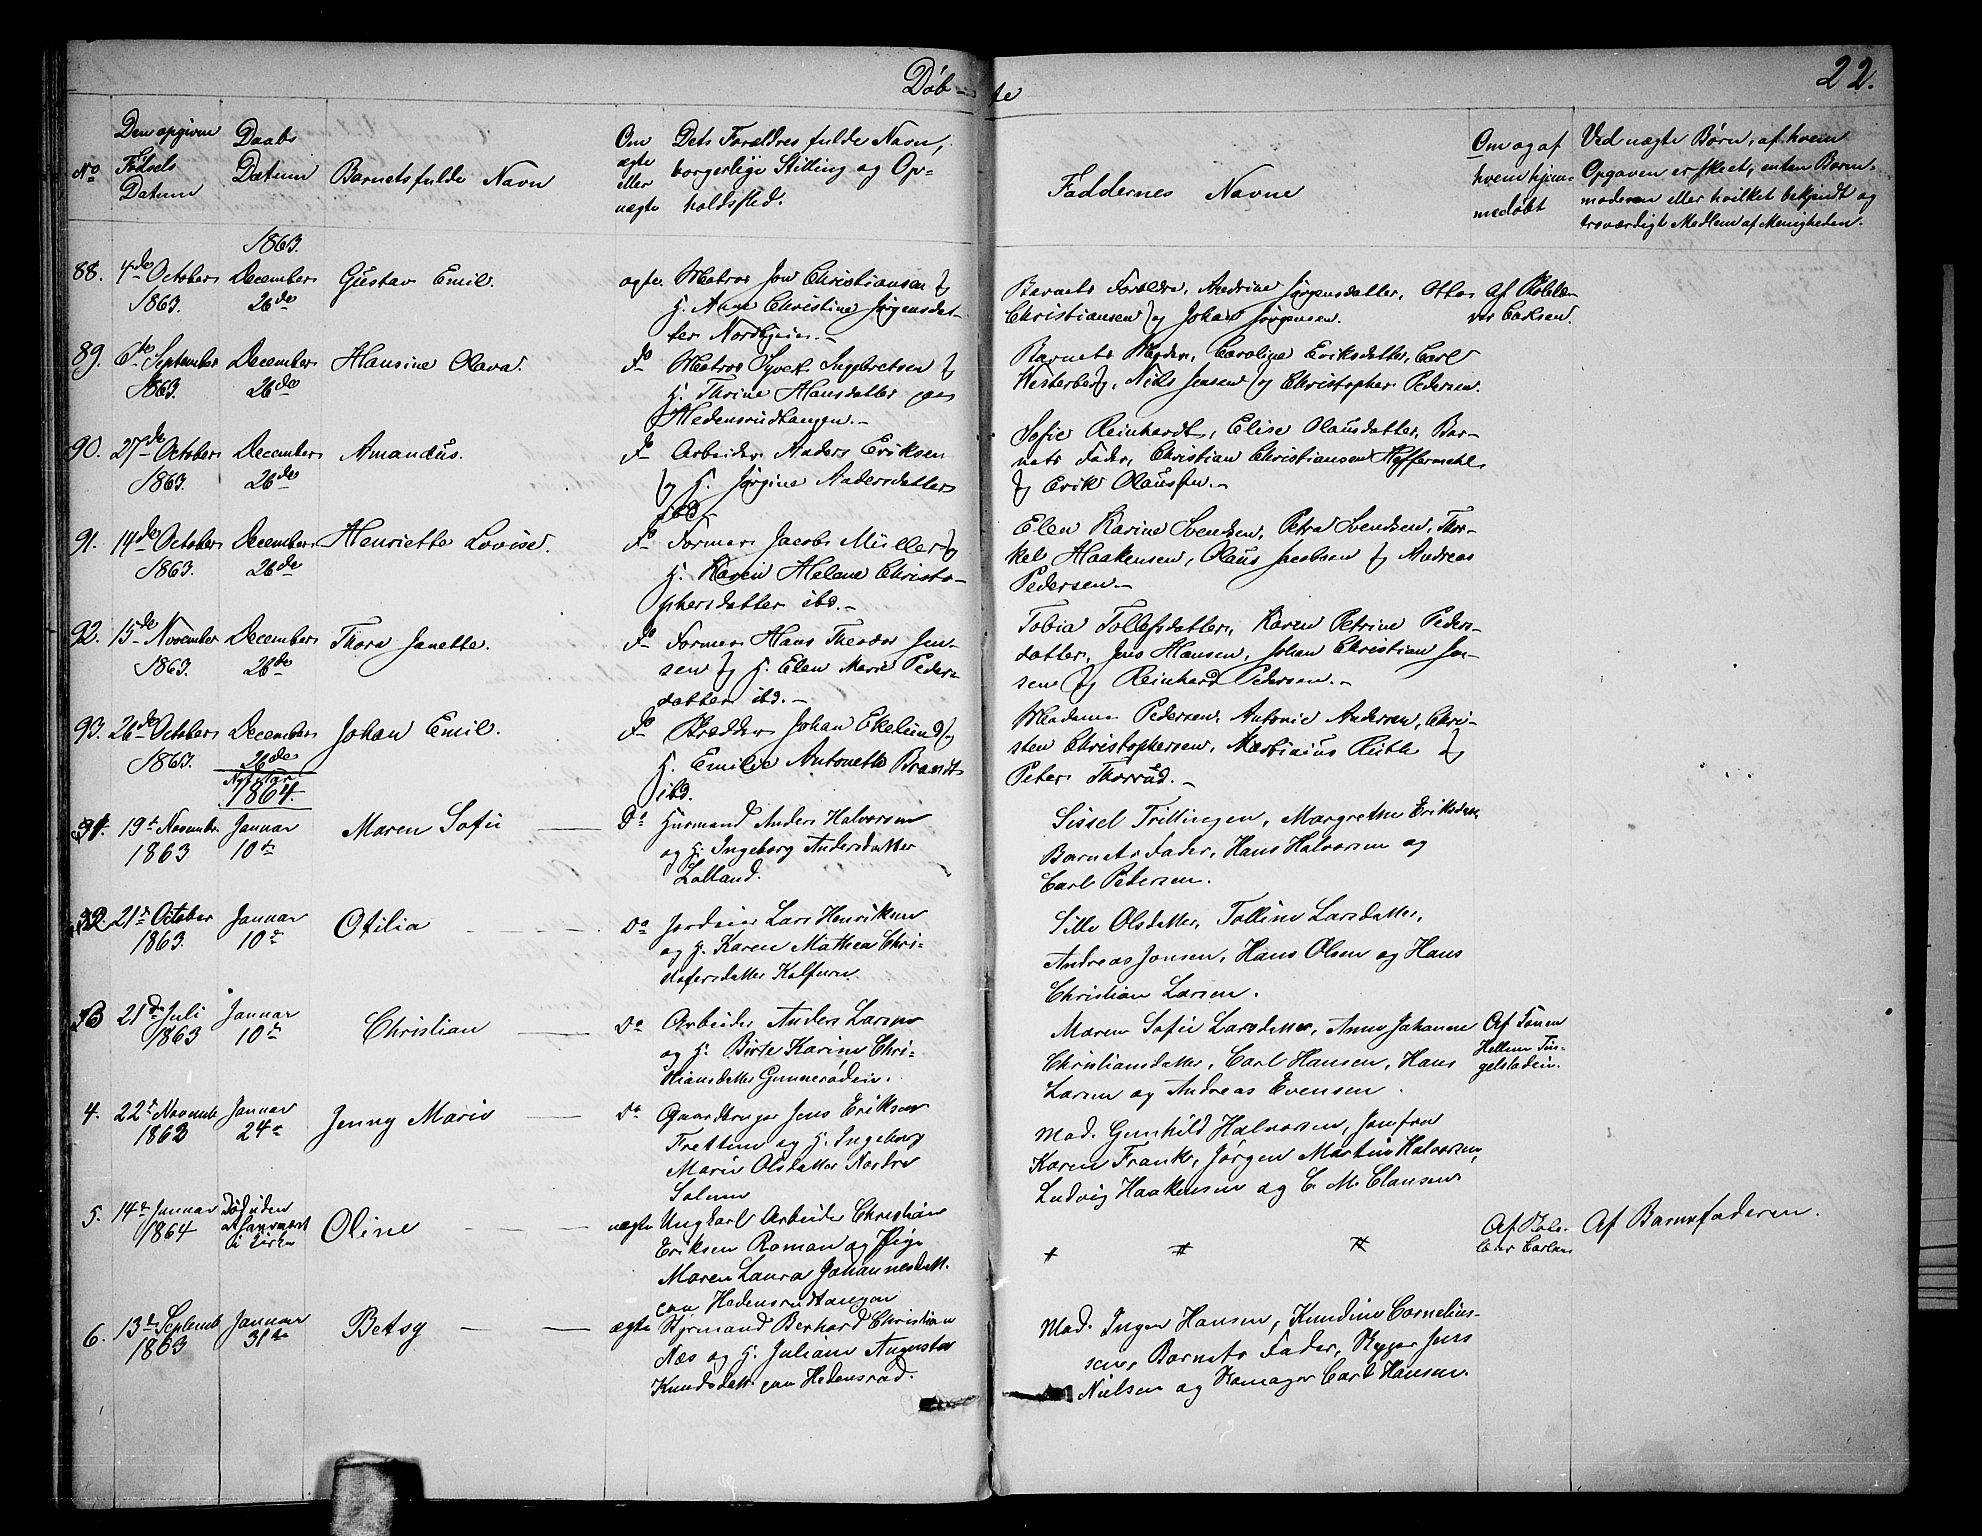 Døbte
22.
No
Den opgivne Fødsels Datum
Daabs Datum
Barnets fulde Navn
Om ægte eller uægte
Dets Forældres fulde Navn, borgerlige Stilling og Opholdsted.
Faddernes Navne
Om og af hvem hjemmedøbt
Ved uægte Børn, af hvem Opgaven er skeet, enten Barnemoderen eller hvilket bekjendt og troværdigt Medlem af Menigheden.
1863.
88. 4de October 1863. December 26de Gustav Emil. ægte.
Matros Jon Christiansen og
H. Anne Christine Jørgensdat-
ter Nordhjem.-
Barnets Forældre, Andrine Jørgensdatter, Otto
Christiansen og Johan Jørgensen.
Af
Carlsen.
89. 6te September 1863. December 26de Hansine Olava. do
Matros Syvert Ingebretsen og
H. Thrine Hansdatter paa
Hedensrudtangen.-
Barnets Moder, Caroline Eriksdatter, Carl
Westerberg, Niels Jensen og Christopher Pedersen.
90. 27de October 1863. December 26de Amandus. do
Arbeider Anders Eriksen
og H. Jørgine Andersdatter
ibd.-
Sofie Reinhardt, Elise Olausdatter, Bar-
nets Fader, Christian Christiansen
og Erik Olaussen.-
91. 14de October 1863. December 26de Henriette Lovise. do
Former Jacob Müller og
H. Karen Helene Christo-
phersdatter ibd.-
Elen Karine Svendsen, Petra Svendsen, Thor-
kel Haakensen, Olaus Jacobsen og Andreas
Pedersen.-
92. 15de November 1863. December 26de Thora Janette. do
Former Hans Theodor Jen-
sen og H. Elen Marie Peders-
datter ibd.-
Tobia Tollefsdatter, Karen Petrine Peders-
datter, Jens Hansen, Johan Christian Jen-
sen og Reinhard Pedersen.-
93. 26de October 1863. December 26de Johan Emil. do
Johan Ekelund og
H. Emilie Antonette Brandt
ibd.
Madame Pedersen, Antonie Andersen, Chri-
sten Christophersen, Mathias Ruth og
Peter Thorrud.-
Nyt Aar
1864.
1. 19de Novembr 1863 Januar 10de Maren Sofie Do
Huusmand Anders Halvorsen
og H. Ingeborg Andersdatter
Lolland.
Sissel Trillingen, Margrethe Eriksdatt
Barnets Fader, Hans Halvorsen og
Carl Petersen.
2. 21de October 1863. Januar 10de Otilia Do
Lars Henriksen
og H. Karen Mathea Chri-
stofersdatter
Sille Olsdatter, Larsdatter,
Andreas Jonsen, Hans Olsen og Hans
Christian Larsen.
3 21de Juli 1863 Januar 10de Christian Do
Arbeider Anders Larsen
og H. Birte Karine Chri-
stiansdatter
Maren Sofie Larsdatter, Anne Johanne
Christiansdatter, Carl Hansen, Hans
Larsen og Andreas Evensen.
Af
Hellum Tin-
gelstadein.
4. 22de Novemb 1863 Januar 24de Jenny Marie Do
Gaardbruger Jens Eriksen
og H. Ingeborg
Marie Olsdatter Nordre
Solum
Mad. Gunhild Halvorsen, Jomfru
Karen Frank, Jørgen Martin Halvorsen,
Ludvig Haakensen og C. M. Clausen
5. 14de Januar 1864 Død uden at have været i Kirke Oline uægte
Ungkarl Arbeider Christian
Eriksen Roman og Pige
Maren Laura Johannesdatt.
paa Hedensrudtangen
Af
Carlsen
Af Barnefaderen.
6. 13de Septemb 1863 Januar 31te Betsy ægte
Styrmand Berhard Christian
Næs og H. Juliane Augusta
Knudsdatt. paa Hedensrud.
Mad. Inger Hansen, Kundine Cornelius-
sen, Barnets Fader, Jens
Nielsen og Carl Hansen.